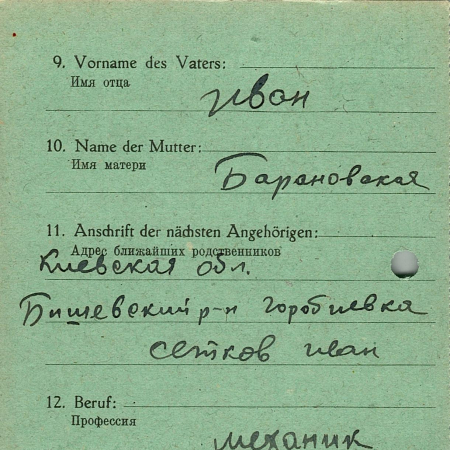 9. Vorname des Vaters:
Имя отца
Иван
10. Name der Mutter:
Имя матери
Барановская
11. Anschrift der nächsten Angehörigen:
Адрес ближайших родственников
Киевская обл.
Бишевский р-н горобиевка
сетков иван
12. Beruf:
Профессия
механик